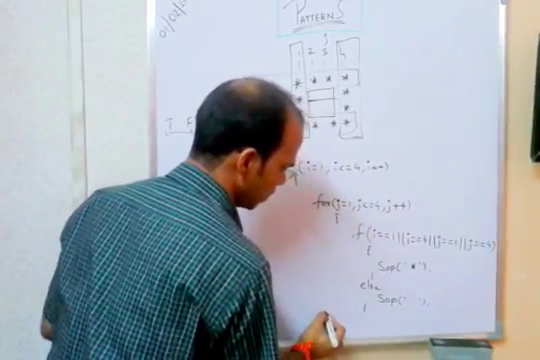 01/02/
PATTERNS
j
1 2 3 4
* * * *
* *
* *
* * *
T F
(i=1, i<=4, i++)
{
for(j=1, j<=4, j++)
{
if(i==1||i==4||j==1||j==4)
{
Sop('*').
else
Sop(' '),
}